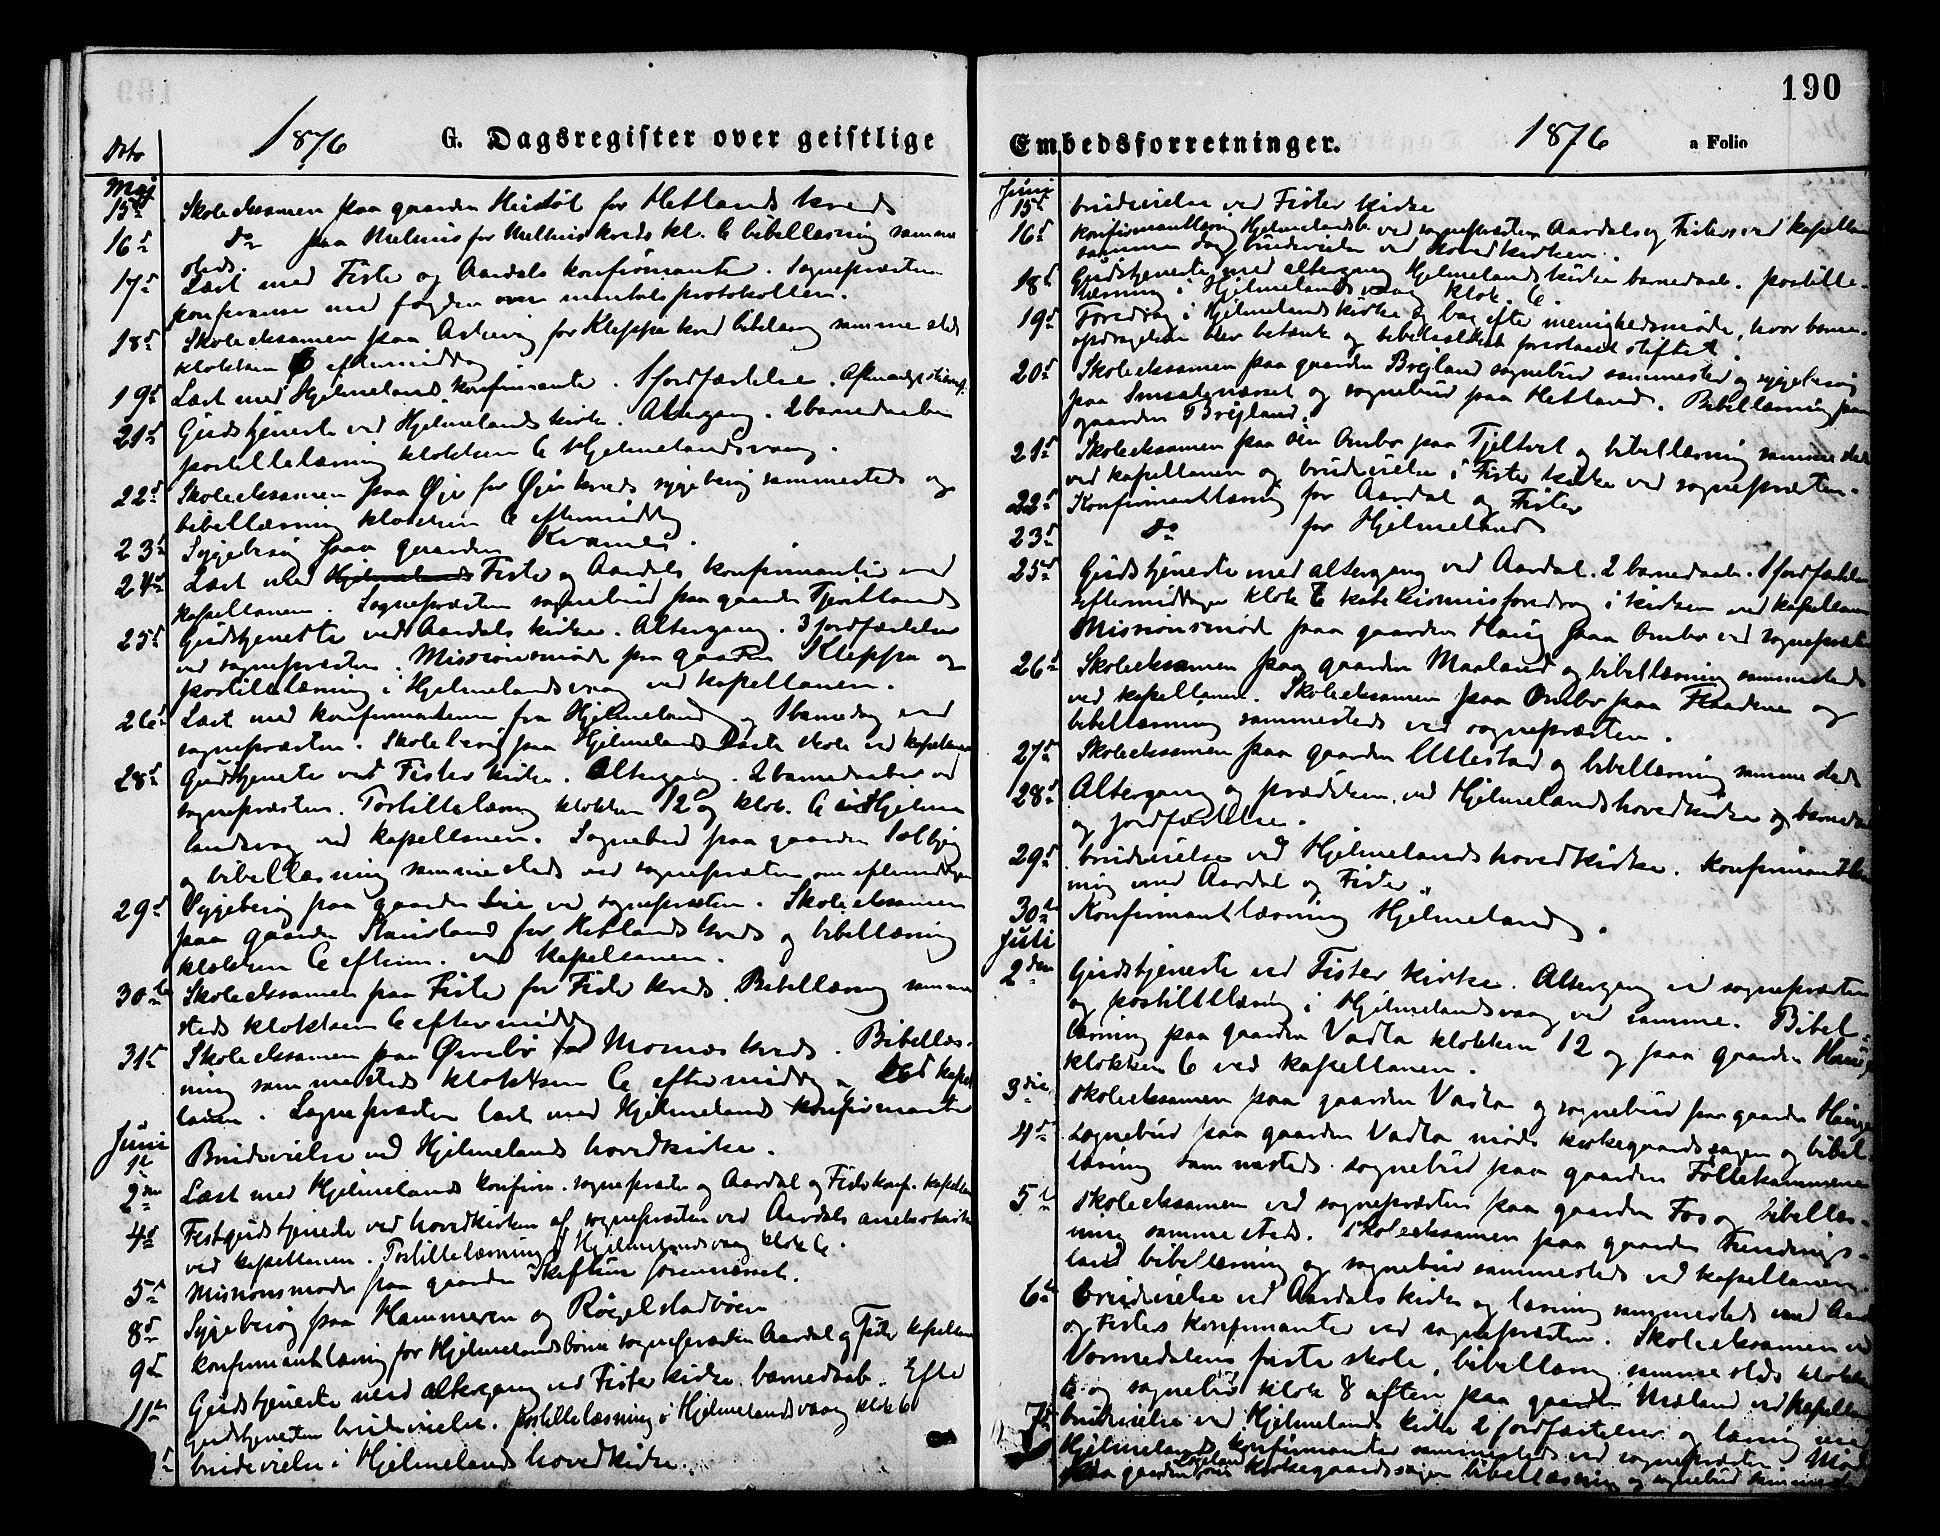 1876 G. Dagsregister over geistlige
Dto
Maj
15d Skoleeksamen paa gaarden Hustöl for Hetlands kreds
16d do paa Melhus for Melhus kreds kl. 6 bibellæsning samme
steds.
17d Læst med Fister og Aardals konfirmanter. Sognepræsten
konferanse med fogden over mandtalsprotokollen.
18d Skoleeksamen paa for Kleppe kred bibelæsng samme steds
klokken 6 eftermiddag
19d Læst med Hjelmelands konfirmanter. 1 jordfæstelse.
21d Gudstjeneste ved Hjelmelands kirke. Altergang. 2 barnedaaben
postillelæsning klokken 6 Hjelmelandsvaag.
22d Skoleeksamen paa Øje for Øje kreds sygebesøg sammesteds og
bibellæsning klokken 6 eftermiddag
23d Sygebesøg paa gaarden Kvames.
24d Læst med Hjelmelands Fister og Aardals konfirmanter ved
kapellanen. Sognepræsten sognebud paa gaarden Tjentlands
25d Gudstjeneste ved Aardals kirke. Altergang. 3 jordfæstelser
ved sognepræsten. Missionsmöde paa gaarden Kleppa og
postillelæsning i Hjelmelandsvaag ved kapellanen.
26d Læst med konfirmanterne fra Hjelmeland og 1 barnedaab ved
sognepræsten. Skolebesøg paa Hjelmelands faste skole ved kapellanen
28d Gudstjeneste ved Fister kirke. Altergang. 2 barnedaaber ved
sognepræsten. Postillelæsng klokken 12 og klok. 6 i Hjelme
landsvag ved kapellanen. Sognebud paa gaarden Sølbjerg
og bibellæsning sammesteds ved sognepræsten om eftermiddagen
29d Sygebesøg paa gaarden Lie ved sognepræsten. Skoleeksamen
paa gaarden for Hetlands kreds og bibellæsning
klokken 6 efterm. ved kapellanen.
30te Skoleeksamen paa Fister for Fister kreds. Bibellæsning samme
steds klokken 6 eftermiddag
31d Skoleeksamen paa Øvrebö for Momas kreds. Bibellæs-
ning sammesteds klokken 6 eftermiddag ved kapel
lanen. Sognepræsten læst med Hjelmelands konfirmanter
Juni
1te Brudevielse ved Hjelmelands hovedkirke.
2den Læst med Hjelmelands konfirm. sognepræsten og Aardal og Fister konf. kapellan
4d Festgudstjeneste ved hovedkirken af sognepræsten ved Aardals
ved kapellanen. Postillelæsning i Hjelmelandsvaag klok 6.
5d Missionsmöde paa gaarden Skeftun
8d Sygebesøg paa Hammeren og Røgelstadböen
9d konfirmantlæsning for Hjelmelandsbörn sognepræsten Aardal og Fister kapellan
11te Gudstjeneste med altergang ved Fister kirke. barnedaab. Efter
gudstjenesten brudevielse. postillelæsning i Hjelmelandsvaag klok 6
brudevielse i Hjelmelands hovedkirke.
Embedsforretninger. 1876 a Folio 190
Juni
15d brudevielse ved Fister kirke
16d konfirmantlæsng Hjelmeland ved sognepræsten Aardals og Fister ved kapellan
samme dag brudevielse ved Hovedkirken.
18d Gudstjeneste med altergang Hjelmelands kirke barnedaab. postille-
læsning i Hjelmelandsvaag klok. 6.
19d Foredrag i Hjelmelands kirke og bag efter menighedsmöde, hvor börne-
opdragelsen blev betænkt og bibelselskab stiftet.
20d Skoleeksamen paa gaarden Brejland sognebud sammested og sygebesøg
paa og sognebud paa Hetland. Bibellæsning paa
gaarden Brejland.
21d Skoleeksamen paa öen Ombo paa Tjeltvet og bibellæsning samme sted
ved kapellanen og brudevielse i Fister kirke ved sognepræsten.
22d Konfirmantlæsning for Aardal og Fister
23d do for Hjelmeland
25d Gudstjeneste med altergang ved Aardal. 2 barnedaab. 1 jordfæstelse
Eftermiddagen klok 6 katekismusforedrag i kirken ved kapellanen
Missionsmöde paa gaarden Haug paa Ombo ved sognepræsten
26d Skoleeksamen paa gaarden Maaland og bibellæsning sammesteds
ved kapellanen. Skoleeksamen paa Ombo paa og
bibellæsning sammesteds ved sognepræsten.
27d Skoleeksamen paa gaarden Ullestad og bibellæsning samme sted
28d Altergang og prædiken ved Hjelmelands hovedkirke og barnedaab
og jordfæstelse.
29d brudevielse ved Hjelmelands hovedkirke. Konfirmantlæs
ning med Aardal og Fister.
30te Konfirmantlæsning Hjelmeland.
Juli
2den Gudstjeneste ved Fister kirke. Altergang ved sognepræsten
og postillelæsning i Hjelmelandsvaag ved samme. Bibel-
læsning paa gaarden Vadla klokken 12 og paa gaarden Hauge
klokken 6 ved kapellanen.
3die skoleeksamen paa gaarden Vadla og sognebud paa gaarden Hauge
4d sognebud paa gaarden Vadla möde kirkegaardssagen og bibel-
læsning sammesteds. sognebud paa gaarden
5te skoleeksamen ved sognepræsten paa gaarden Fosog bibellæs-
ning sammesteds. skoleeksamen paa gaarden Fundings-
land bibellæsning og sognebud sammesteds ved kapellanen.
6te brudevielse ved Aardals kirke og læsning sammesteds med Aar
og Fisters konfirmanter ved sognepræsten. Skoleeksamen ved
Vormedalens faste skole, bibellæsng samme steds klokken
6 og sognebud klok 8 aften paa gaarden Mæland ved kapellan
7d brudevielse ved Hjelmelands kirke 2 jordfæstelser og læsning med
Hjelmelands konfirmanter sammesteds ved sognepræsten Möde
paa gaarden kirkegaardssagen bibellæsning og sognebud sammesteds